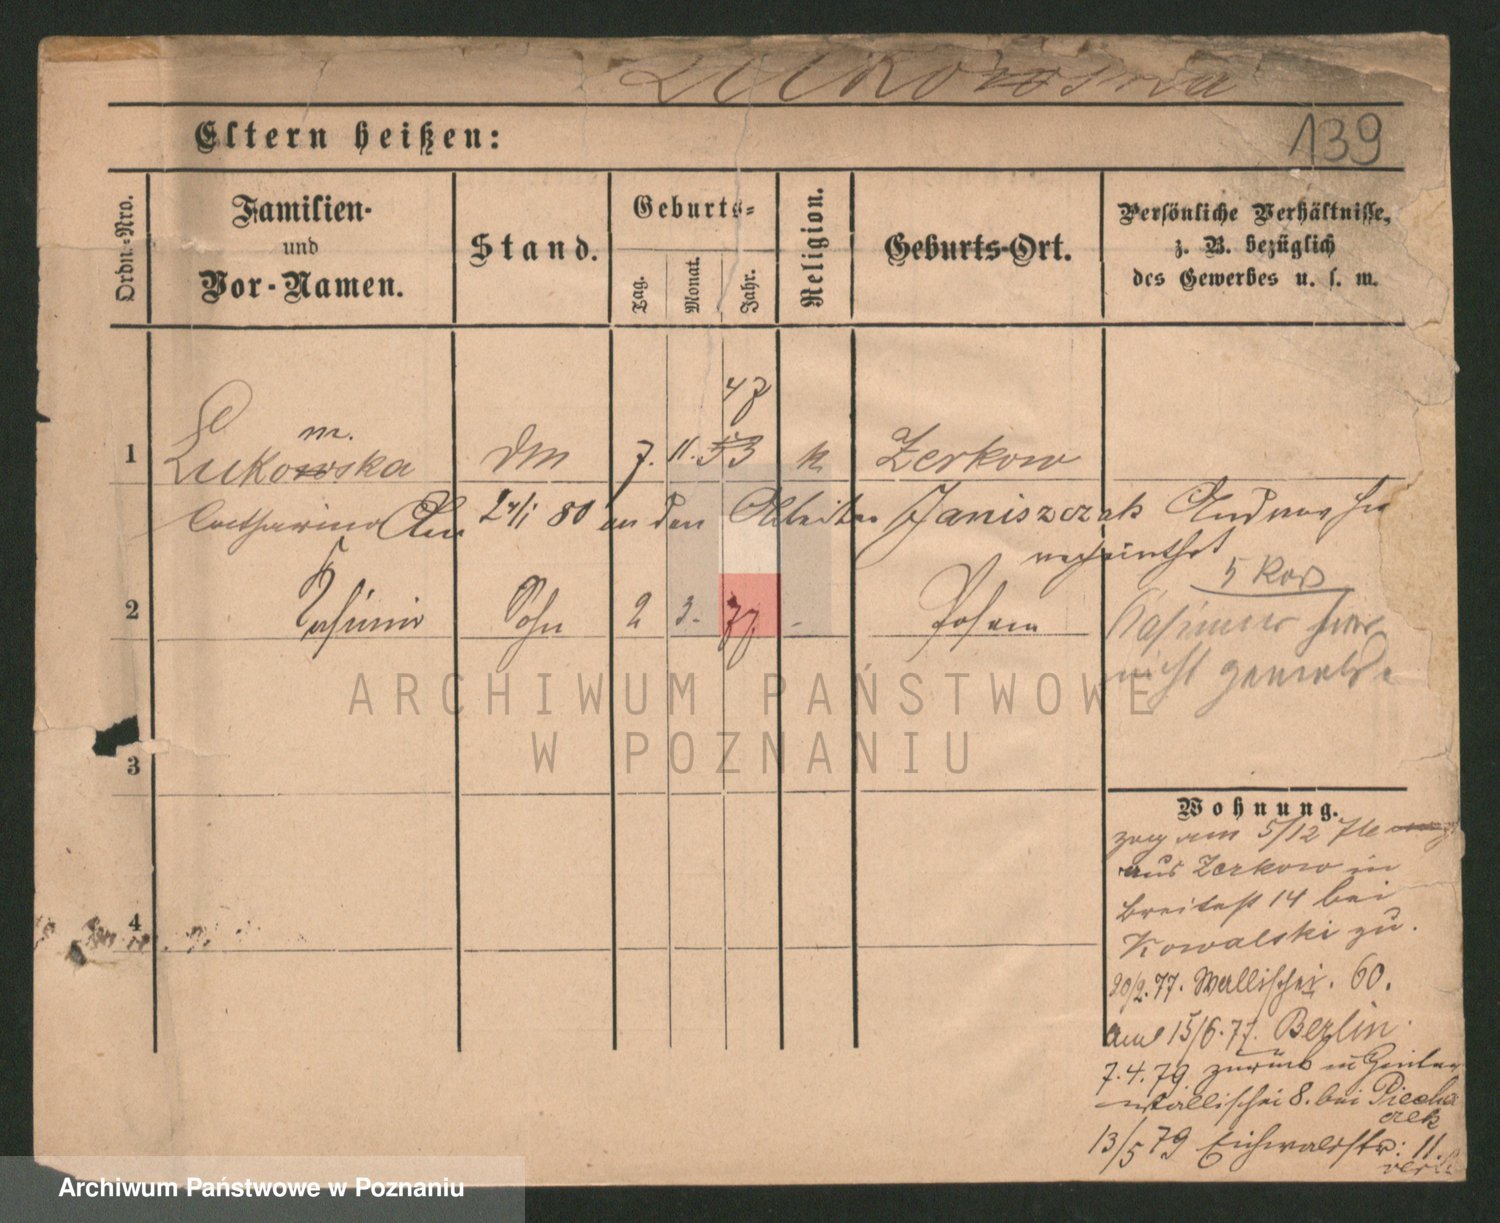 Lukowska
Eltern heißen:
139
Ordn.-Nro.
Familien-
und
Vor-Namen.
Stand.
Geburts-
Tag.
Monat.
Jahr.
Religion.
Geburts-Ort.
Persönliche Verhältnisse,
z. B. bezüglich
des Gewerbes u. s. w.
47
m.
1 Lukowska DM 7. 11. 53 k Zerkow
Catharina 24/1 80 an den Arbeiter Janiszczak Andreas
verheirathet
5 Kop
2 Kasimir Sohn 2 3. 77 - Posen
Kasimir hier
nicht gemeldet
ARCHIWUM PAŃSTWOWE
W POZNANIU
3
Wohnung.
zog am 5/12 76
aus Zerkow in
Breitestr 14 bei
4
Kowalski zu.
20/2. 77. Wallischei. 60.
15/6. 77. Berlin.
7. 4. 79. zurück
Wallischei 8. bei Piecha
czek
13/5 79 Eichwaldstr: 11.
Archiwum Państwowe w Poznaniu